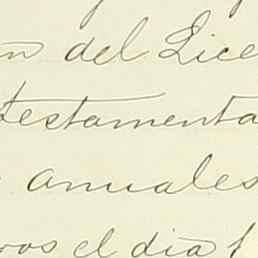 del Lice
testamenta
anuales
ros el dia 1